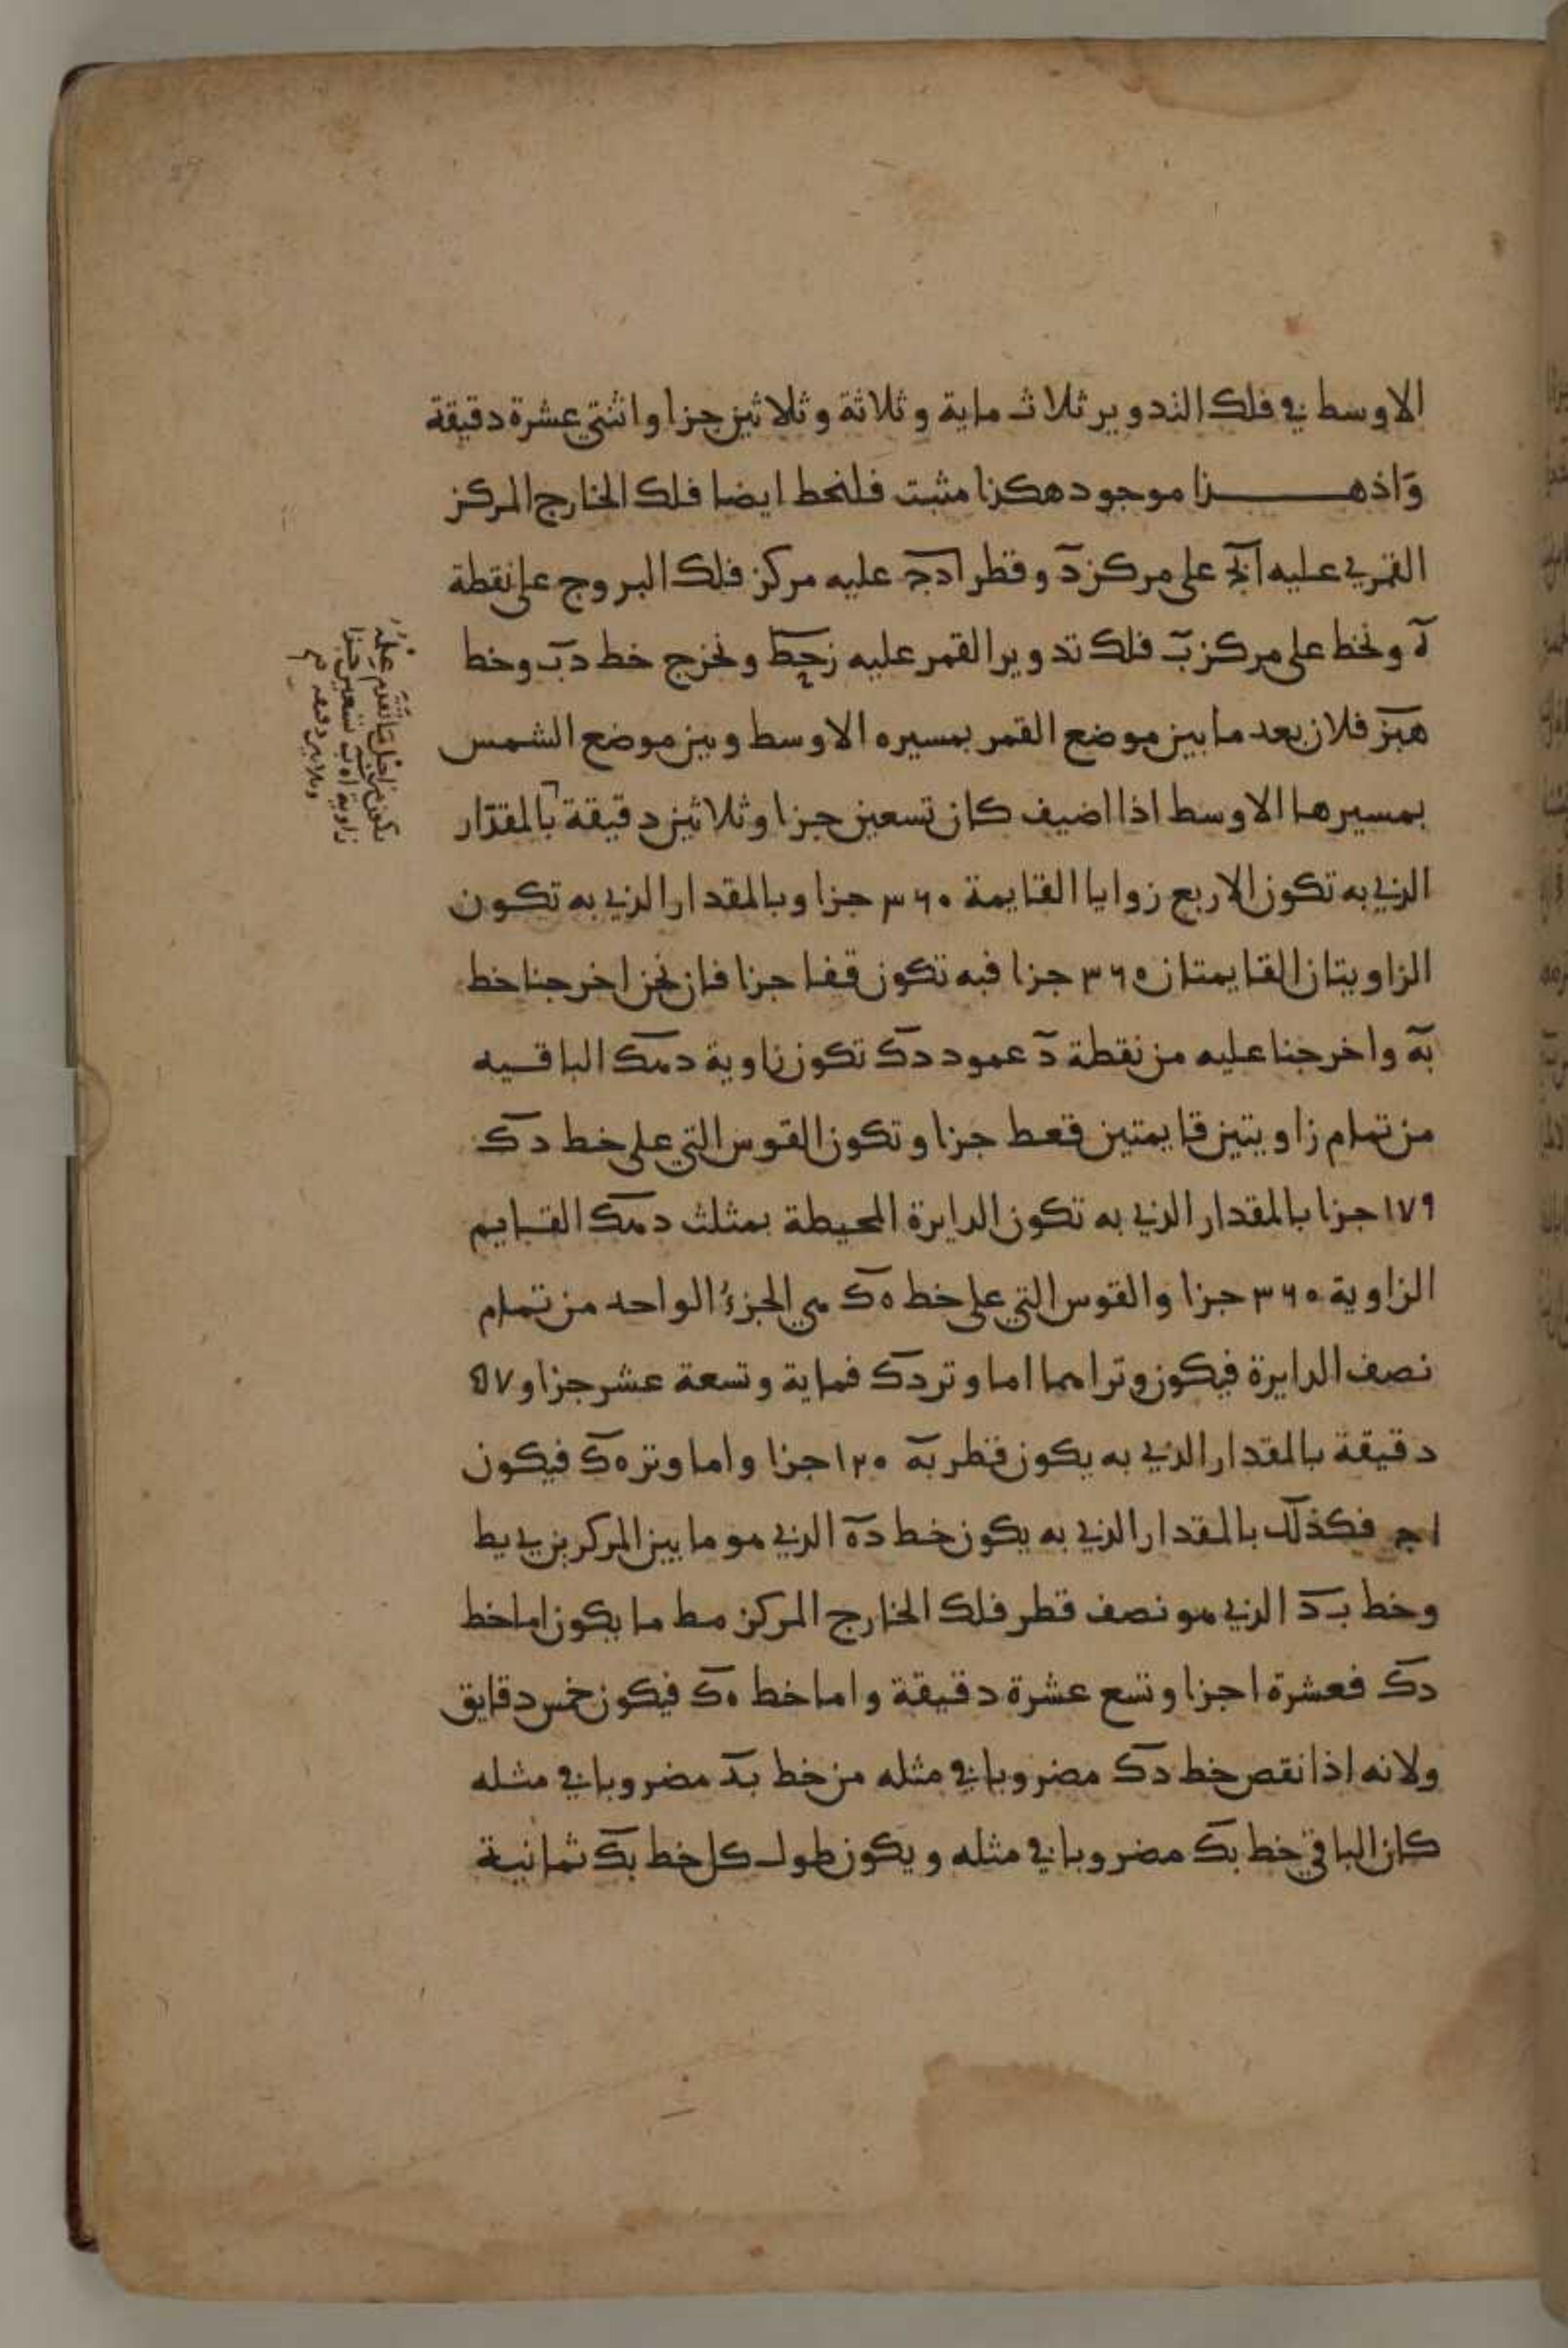 الاوسط في فلك التدوير ثلاث ماية وثلاثة وثلاثين جزا واثنتي عشرة دقيقة
وَاذ هذا موجود هكذا مثبت فلنخط ايضا فلك الخارج المركز
القمري عليه ابج على مركز د وقطر ادج عليه مركز فلك البروج على نقطة
ه ونخط على مركز ب فلك تدوير القمر عليه زحط ونخرج خط دب وخط
هبز فلان بعد ما بين موضع القمر بمسيره الاوسط وبين موضع الشمس
بمسيرها الاوسط اذا اضيف كان تسعين جزا وثلاثين دقيقة بالمقدار
الذي به تكون الاربع زوايا القايمة ٣٦٠ جزا وبالمقدار الذي به تكون
الزاويتان القايمتان ٣٦٠ جزا فبه تكون قفا جزا فان نحن اخرجنا خط
به واخرجنا عليه من نقطة د عمود دك تكون زاوية دهك الباقيه
من تمام زاويتين قايمتين قعط جزا وتكون القوس التي على خط دك
١٧٩ جزا بالمقدار الذي به تكون الدايرة المحيطة بمثلث دهك القايم
الزاوية ٣٦٠ جزا والقوس التي على خط هك هي الجزءُ الواحد من تمام
نصف الدايرة فيكون وتراهما اما وتر دك فماية وتسعة عشر جزا و ٥٧
دقيقة بالمقدار الذي به يكون قطر به ١٢٠ جزا واما وتر هك فيكون
ا ج فكذلك بالمقدار الذي به يكون خط ده الذي هو ما بين المركزين ي يط
وخط بد الذي هو نصف قطر فلك الخارج المركز مط ما يكون اما خط
دك فعشرة اجزا وتسع عشرة دقيقة واما خط هك فيكون خمس دقايق
ولانه اذا نقص خط دك مضروبا في مثله من خط بد مضروبا في مثله
كان الباقي خط بك مضروبا في مثله ويكون طول كل خط بك ثمانية
تكون من اجل ما تقدم
زاوية اهب تسعين جزا
وثلاثين دقيقه